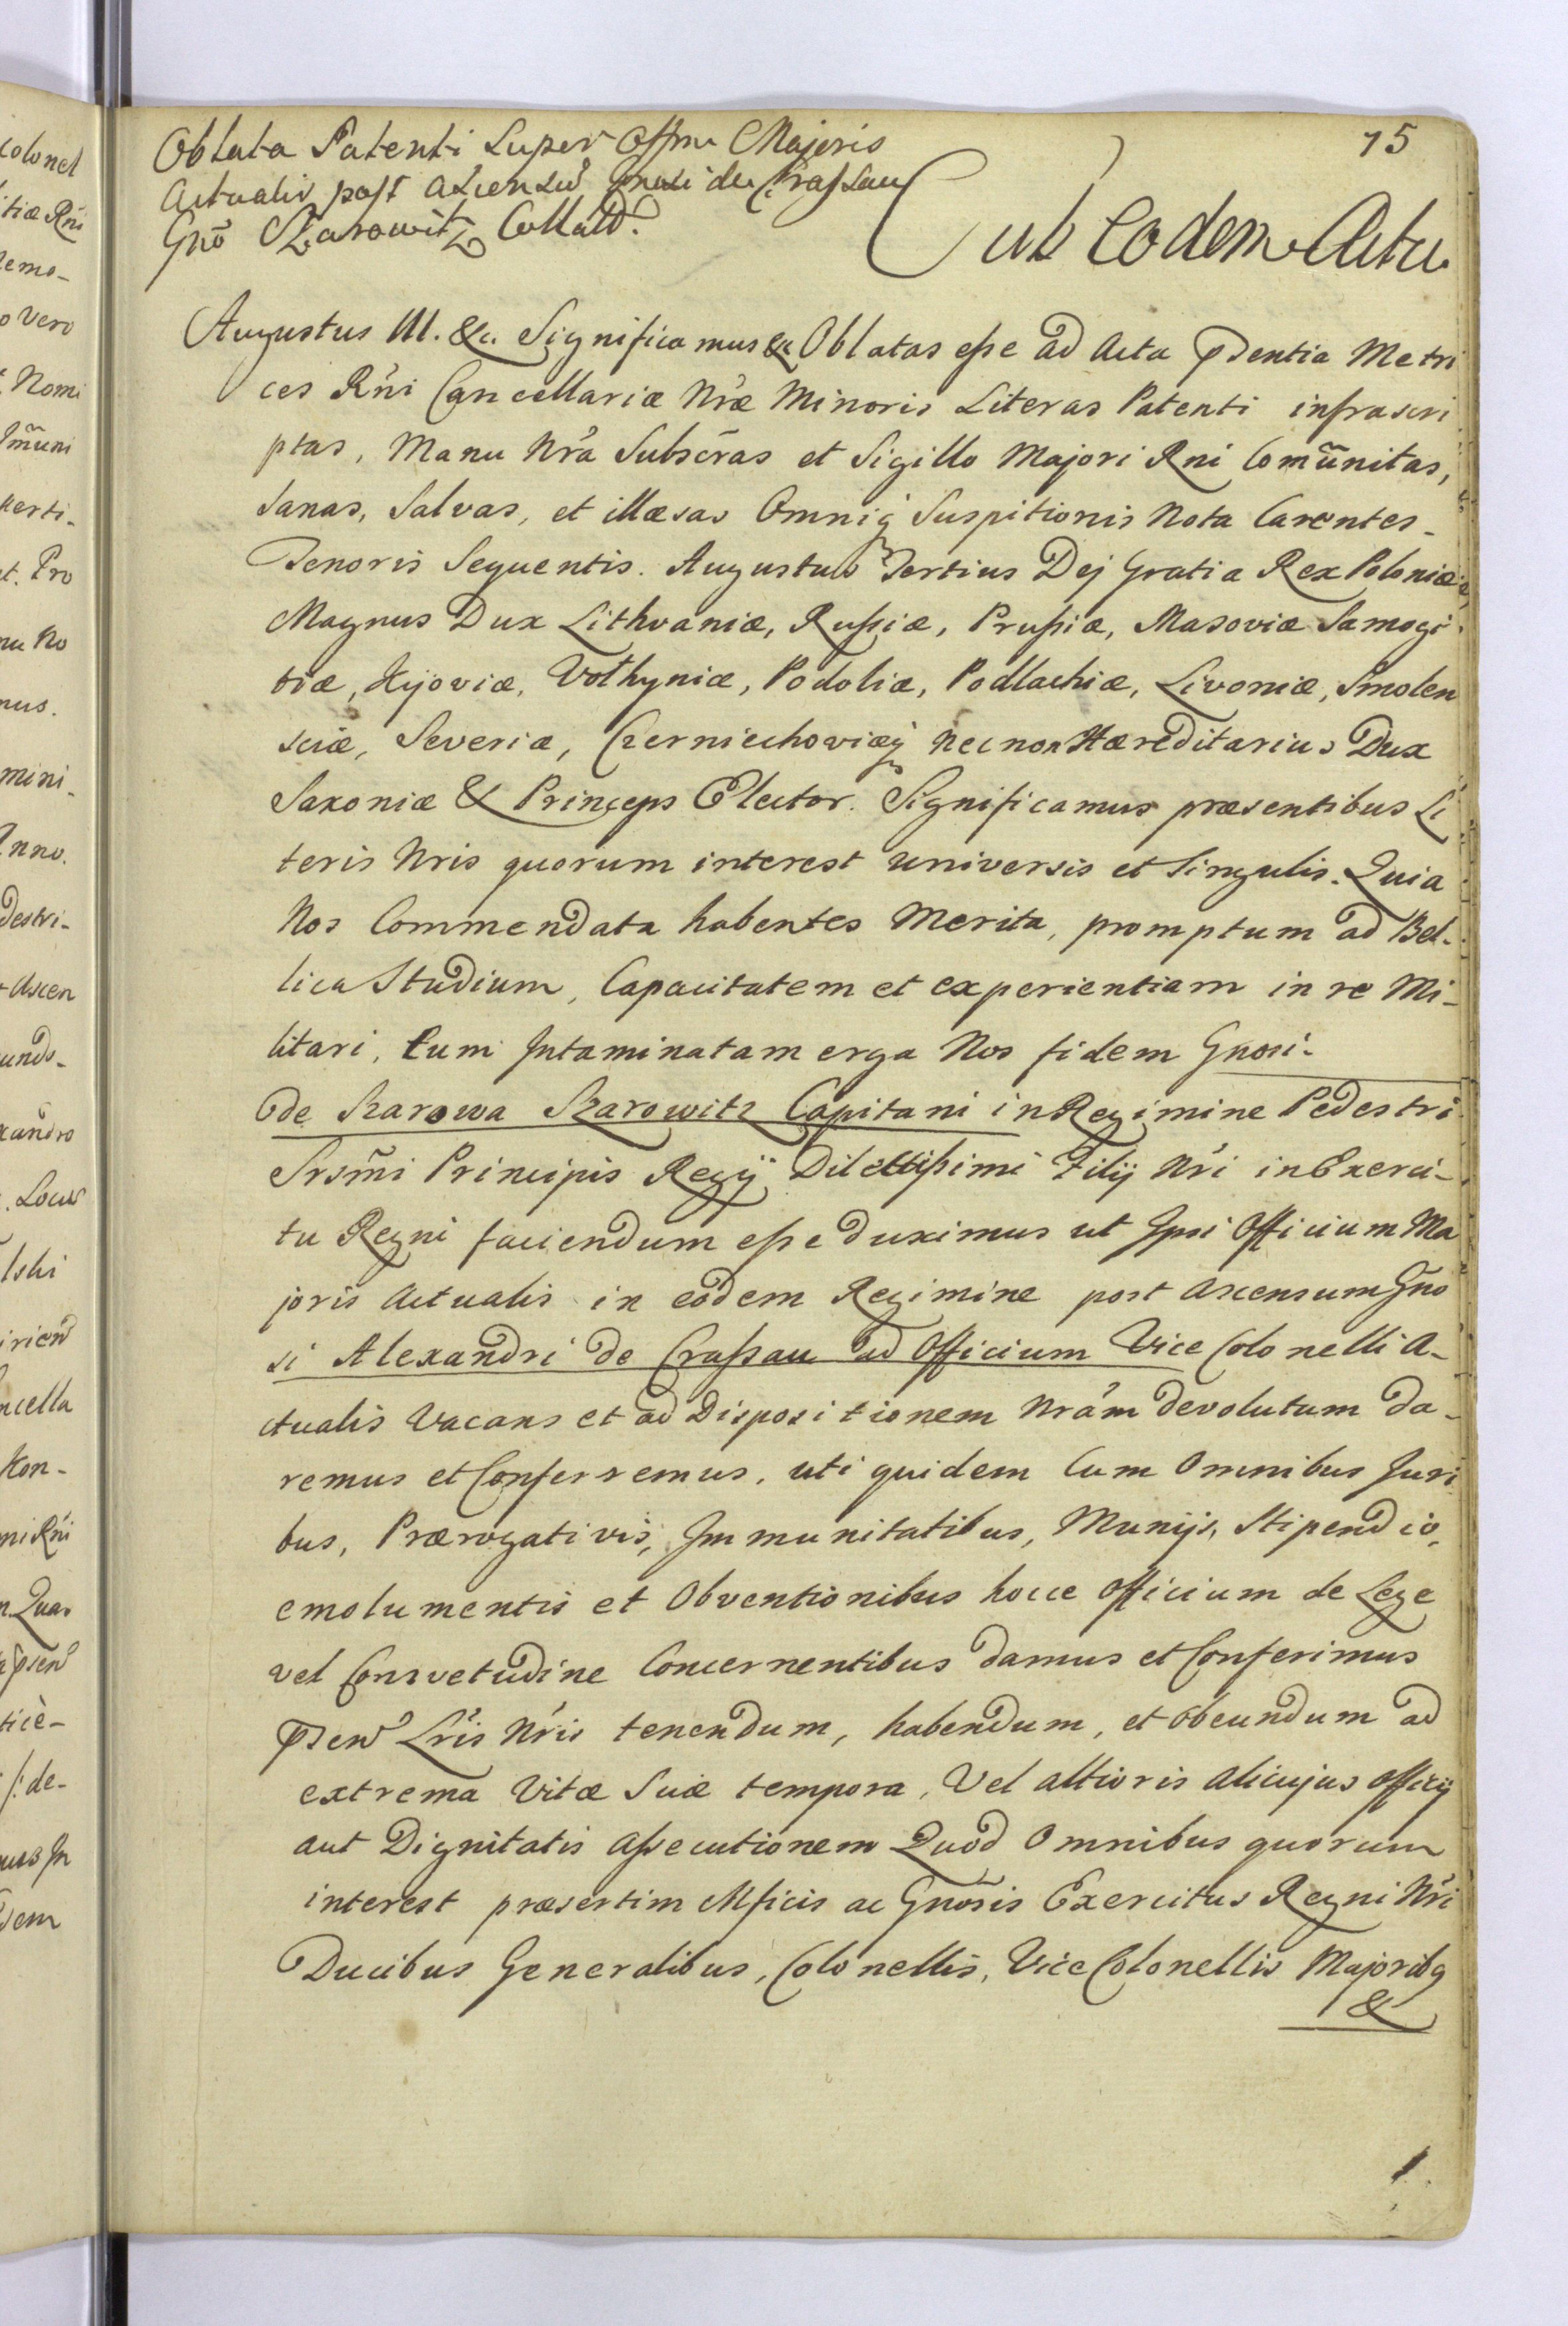 15
Oblata Patenti Super Offm Majoris
Actualis post ascensū Gnosi de Crassau
Gnō Szarowitz Collati.
Sub Eodem Actu
Augustus III. &c. Significamus &c Oblatas esse ad Acta pdentia Metri
ces Rńi Cancellariæ Nræ Minoris Literas Patenti infrascri
ptas, Manu Nrá Subscras et Sigillo Majori Rni Comūnitas,
Sanas, Salvas, et illæsas Omniq Suspitionis Nota Carentes
Tenoris Sequentis. Augustus Tertius Dej Gratia Rex Poloniæ
Magnus Dux Lithvaniæ, Russiæ, Prussiæ, Masoviæ Samogi
tiæ, Kijoviæ, Volhyniæ, Podoliæ, Podlachiæ, Livoniæ, Smolen
sciæ, Severiæ, Czerniechoviæq necnon Hæreditarius Dux
Saxoniæ & Princeps Elector. Significamus præsentibus Li
teris Nris quorum interest universis et Singulis. Quia
Nos Commendata habentes Merita, promptum ad Bel-
lica Studium, Capacitatem et experientiam in re Mi-
litari, tum Intaminatam erga Nos fidem Gnosi-
de Szarowa Szarowitz Capitani in Regimine Pedestri
Srsm̃i Principis Regij Dilectissimi Filij Nri in Exerci-
tu Regni faciendum esse duximus ut Ipsi Officium Ma
joris Actualis in eodem Regimine post ascensum Gno
si Alexandri de Crassau ad Officium Vice Colonelli A-
ctualis Vacans et ad Dispositionem Nrám devolutum da-
remus et Conferremus, uti quidem Cum Omnibus Juri
bus, Prærogativis, Immunitatibus, Munijs, Stipendio,
emolumentis et Obventionibus hocce Officium de Lege
vel Consvetudine Concernentibus damus et Conferimus
psen Lris Nris tenendum, habendum, et obeundum ad
extrema Vitæ Suæ tempora, Vel altioris alicujus officij
aut Dignitatis assecutionem Quod Omnibus quorum
interest præsertim Mficis ac Gnosis Exercitus Regni Nri
Ducibus Generalibus, Colonellis, Vice Colonellis Majoribq
&